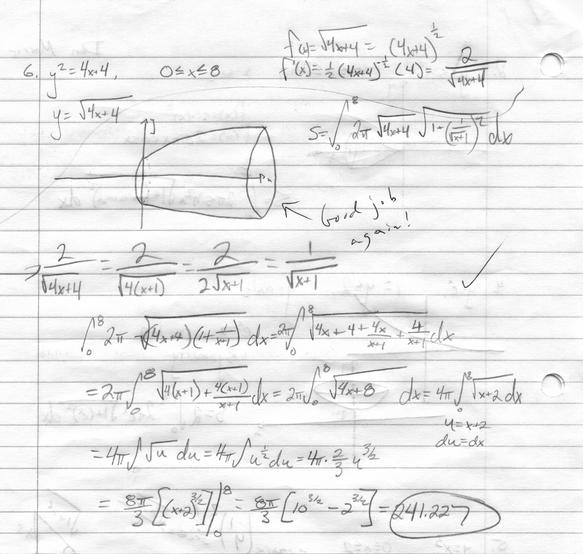 f(x) = √(4x+4) = (4x+4)^(1/2)
6. y² = 4x+4, 0 ≤ x ≤ 8
f'(x) = 1/2 (4x+4)^(-1/2) (4) = 2/√(4x+4)
y = √(4x+4)
S = ∫₀⁸ 2π √(4x+4) √(1+(1/√(x+1))²) dx
Good job
again!
⇒ 2/√(4x+4) = 2/√(4(x+1)) = 2/(2√(x+1)) = 1/√(x+1)
∫₀⁸ 2π √((4x+4)(1+1/(x+1))) dx = 2π ∫₀⁸ √(4x+4+4x/(x+1)+4/(x+1)) dx
= 2π ∫₀⁸ √(4(x+1)+4(x+1)/(x+1)) dx = 2π ∫₀⁸ √(4x+8) dx = 4π ∫₀⁸ √(x+2) dx
u = x+2
du = dx
= 4π ∫ √u du = 4π ∫ u^(1/2) du = 4π · 2/3 u^(3/2)
= 8π/3 [(x+2)^(3/2)] |₀⁸ = 8π/3 [10^(3/2) − 2^(3/2)] = 241.227